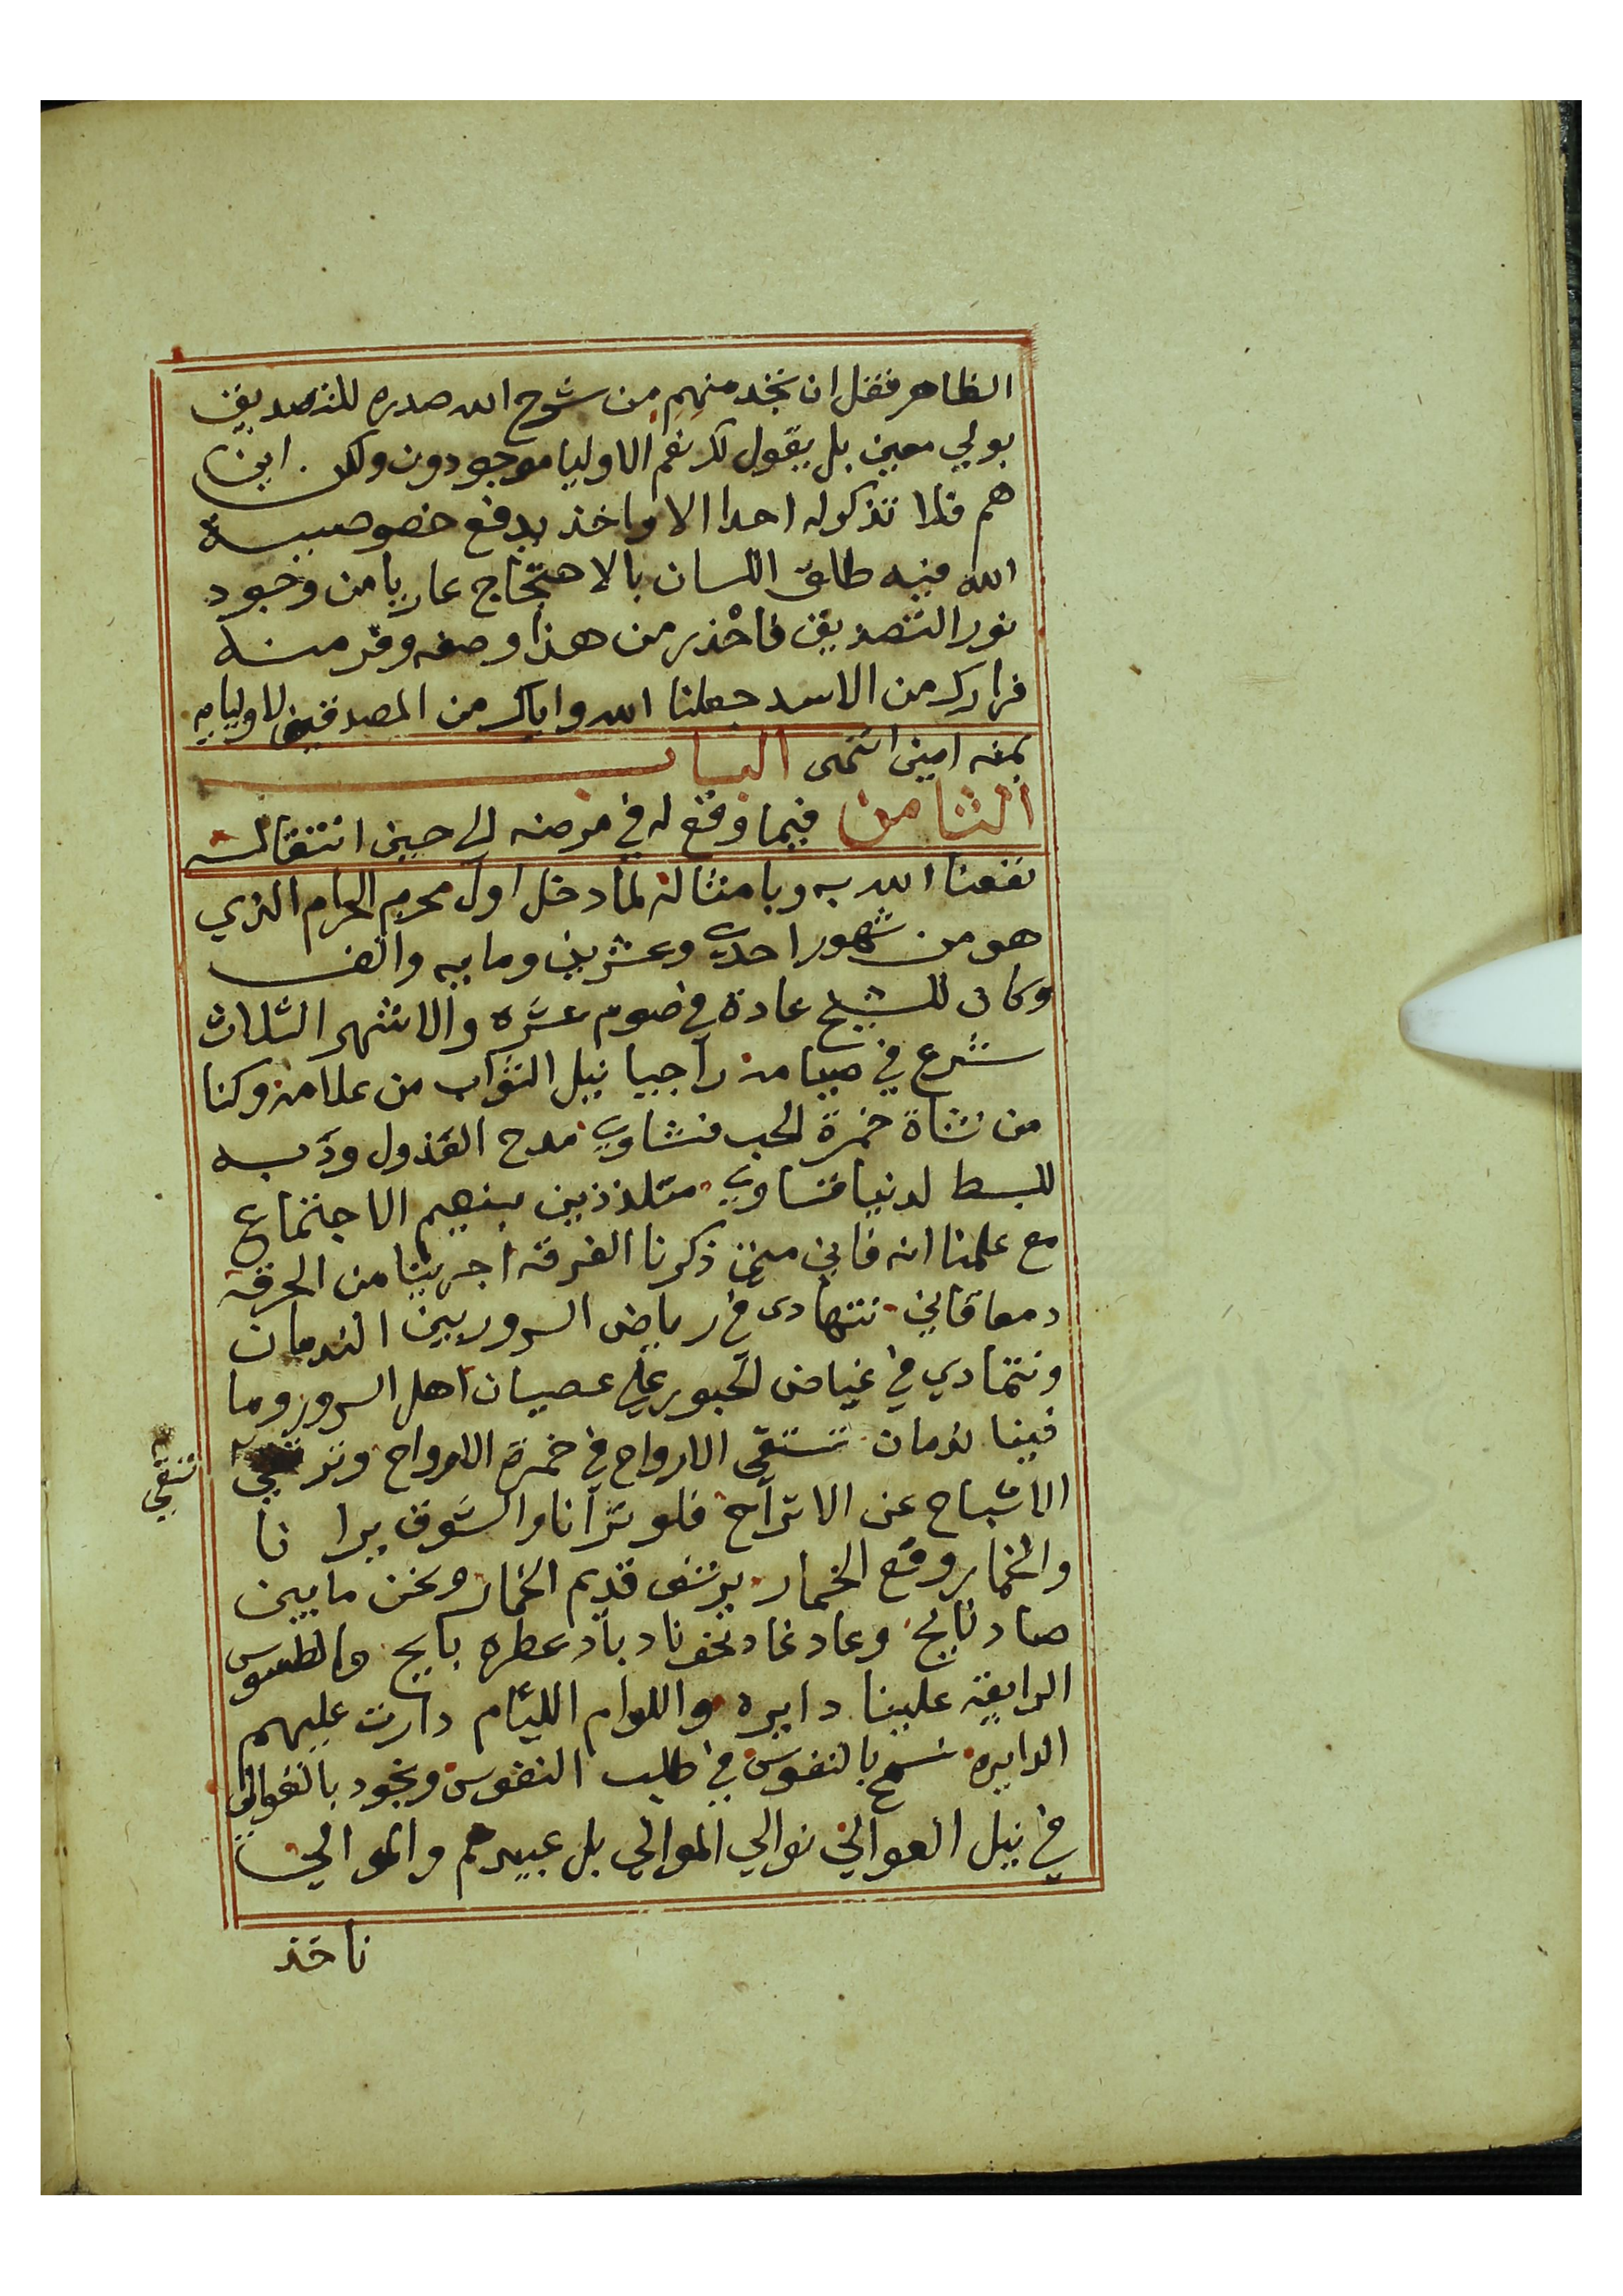 الظاهر فقل ان تجد منهم من شرح الله صدره للتصديق
بولي معين بل يقول لك نعم الاوليا موجودون ولكن اين
هم فلا تذكر له احدا الا واخذ يدفع خصوصية
الله فيه طلق اللسان بالاحتجاج عاريا من وجود
نور التصديق فاحْذر من هذا وصفه وفر منه
فرارك من الاسد جعلنا الله واياك من المصدقين لاوليايه
بمنه امين انتهى الباب
الثامن فيما وقع له في مرضه الي حين انتقاله
نفعنا الله به وبامثاله لما دخل اول محرم الحرام الذي
هو من شهور احدي وعشرين ومايه والف
وكان للشيخ عادة في صوم عشره والاشهر الثلاث
شرع في صيامه راجيا نيل الثواب من علامه وكنا
من نشاة خمرة الحب نشاوي مدح العذول وذبه
للبسط لدينا تساوي متلذذين بنعيم الاجتماع
مع علمنا انه فاني متى ذكرنا الفرقه اجرينا من الحرقه
دمعا قاني نتهادى في رياض السرور بين الندمان
ونتمادي في غياض الحبور علي عصيان اهل السرور وما
فينا ندمان تستقى الارواح في خمرة الارواح وتر
تنقي
الاشباح عن الاتراح فلو ترآنا والشوق برا نا
والخمار وقع الخمار يرشف قديم الخمار ونحن مابين
صاد نايح وعاد غاد نحو ناد باد عطره بايح والطوس
الرايقة علينا دايره واللوام الليام دارت عليهم
الدايره نسمح بالنفوس في طلب النفوس ونجود بالغوالي
في نيل العوالي نوالي الموالي بل عبيدهم والموالي
ناخذ